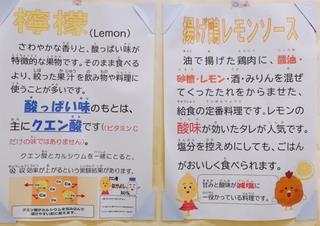 檸檬(Lemon)
さわやかな香りと、酸っぱい味が
特徴的な果物です。そのまま食べる
より、絞った果汁を飲み物や料理に
使うことが多いです。
酸っぱい味のもとは、
主にクエン酸です(ビタミンC
だけの味ではありません)。
クエン酸とカルシウムを一緒にとると、
吸収効率が上がるという実験結果があります。
クエン酸がカルシウムを包み込んで
揚げ鶏レモンソース
油で揚げた鶏肉に、醤油・
砂糖・レモン・酒・みりんを混ぜ
てくったたれをからませた、
給食の定番料理です。レモンの
酸味が効いたタレが人気です。
塩分を控えめにしても、ごはん
がおいしく食べられます。
甘みと酸味が減塩に
一役かっている料理です。